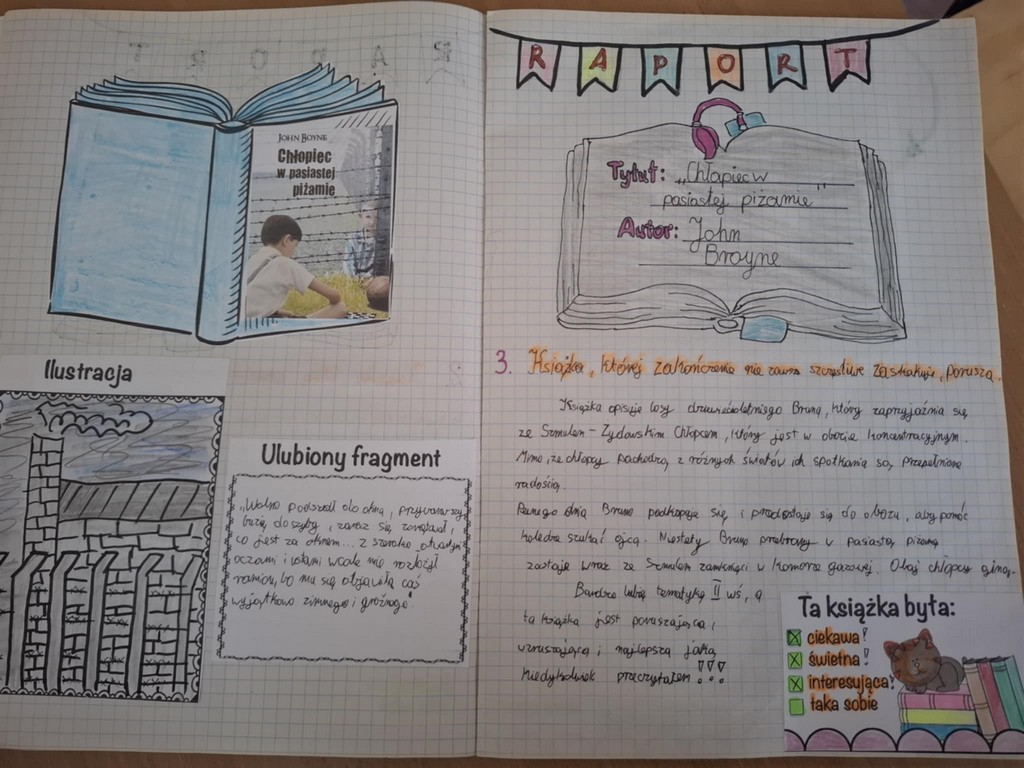 JOHN BOYNE
Chłopiec
w pasiastej
piżamie
Ilustracja
Ulubiony fragment
"Wolno podszedł do okna, przywarł
buzię do szyby, zaraz się
co jest za oknem... z szeroko otwartymi
oczami i ustami wcale nie rozłożył
ramion, bo mu się objawiło coś
wyjątkowo zimnego i groźnego"
RAPORT
Tytuł: "Chłopiec w
pasiastej piżamie"
Autor: John
Broyne
3. Książka, której zakończenie nie zawsze szczęśliwe zaskakuje, porusza.
Książka opisuje losy Bruna, który zaprzyjaźnia się
ze Szmulem - Żydowskim Chłopcem, który jest w obozie koncentracyjnym.
Mimo, że chłopcy pochodzą z różnych światów ich spotkania są przepełnione
radością.
Pewnego dnia Bruno podkopuje się i przedostaje się do obozu, aby pomóc
koledze szukać ojca. Niestety Bruno przebrany w pasiastą piżamę
zostaje wraz ze Szmulem zamknięci w komorze gazowej. Obaj chłopcy giną.
Bardzo lubię tematykę II wś, a
ta książka jest poruszająca i
wzruszająca i najlepszą jaką
kiedykolwiek przeczytałem!!!
Ta książka była:
ciekawa!
świetna!
interesująca!
taka sobie